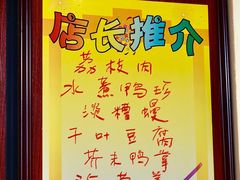 店长推介
荔枝肉
水煮鸭珍
淡糟螺
千叶豆腐
芥末鸭掌